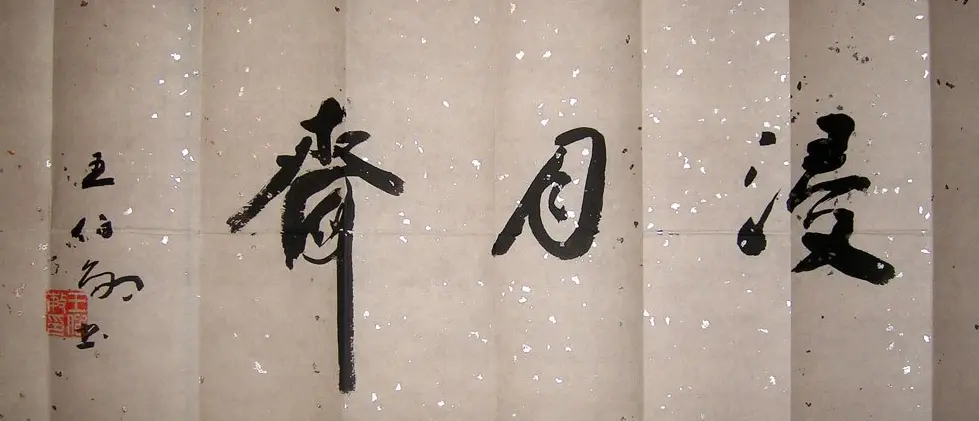 浸月齋
王伯敏书
王伯敏印